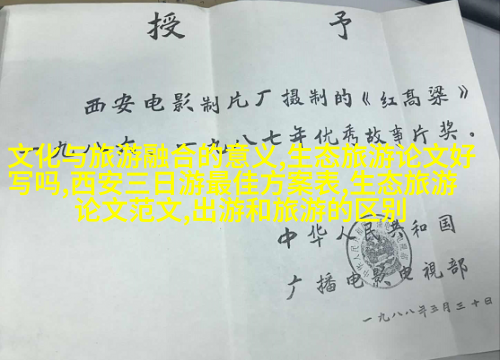 授予
西安电影制片厂摄制的《红高粱》
一九八六、一九八七年优秀故事片奖。
文化与旅游融合的意义,生态旅游论文好
写吗,西安三日游最佳方案表,生态旅游
论文范文,出游和旅游的区别
中华人民共和国
广播电影电视部
一九八八年三月三十日